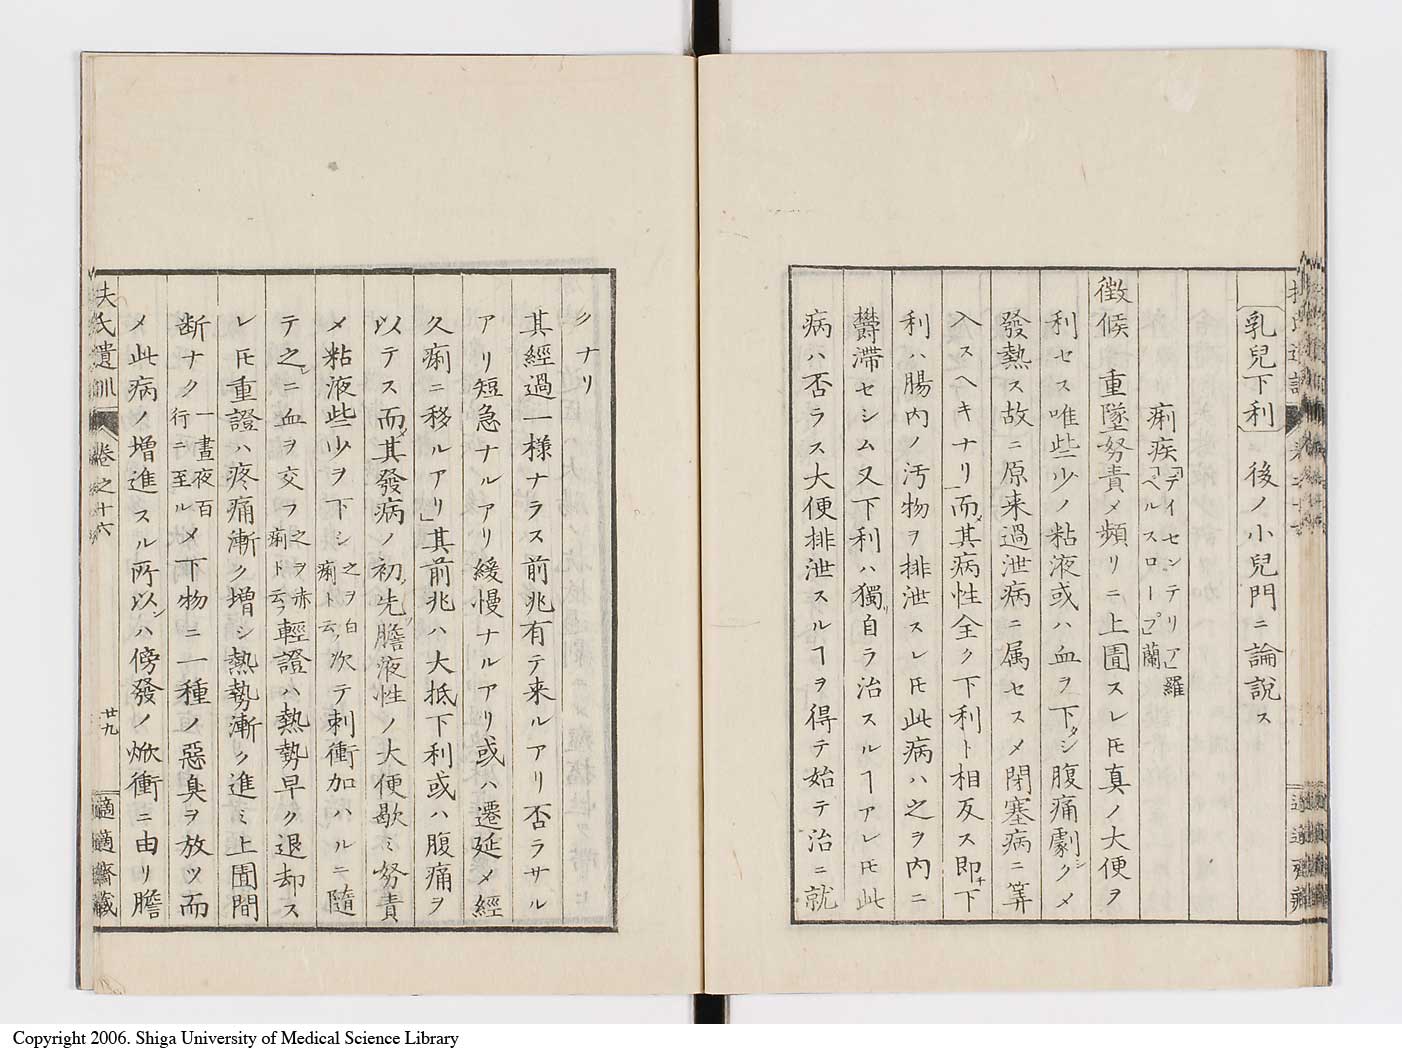 乳兒下利 後ノ小兒門ニ論說ス
痢疾「デイセンテリア」羅
「ペルスロープ」蘭
徵候 重墜努責メ頻リニ上圊スレ𪜈真ノ大便ヲ
利セス唯些少ノ粘液或ハ血ヲ下シ腹痛劇クメ
發熱ス故ニ原来過泄病ニ属セスメ閉塞病ニ筭
入スヘキナリ而メ其病性全ク下利ト相反ス即チ下
利ハ腸內ノ汚物ヲ排泄スレ𪜈此病ハ之ヲ内ニ
欝滯セシム又下利ハ獨リ自ラ治スルヿアレ𪜈此
病ハ否ラス大便排泄スルヿヲ得テ始テ治ニ就
クナリ
其經過一樣ナラス前兆有テ来ルアリ否ラサル
アリ短急ナルアリ緩慢ナルアリ或ハ遷延メ經
久痢ニ移ルアリ」其前兆ハ大抵下利或ハ腹痛ヲ
以テス而メ其發病ノ初先ツ膽液性ノ大便歇ミ努責
メ粘液些少ヲ下シ之ヲ白痢ト云フ次テ刺衝加ハルニ隨
テ之ニ血ヲ交フ之ヲ赤痢ト云フ輕證ハ熱勢早ク退却ス
レ𪜈重證ハ疼痛漸ク增シ熱勢漸ク進ミ上圊間
断ナク一晝夜百行ニ至ルメ下物ニ一種ノ惡臭ヲ放ツ而
メ此病ノ增進スル所以ンハ傍發ノ焮衝ニ由リ膽
扶氏遺訓 卷之十六 廿九 適適齋藏
Copyright 2006. Shiga University of Medical Science Library